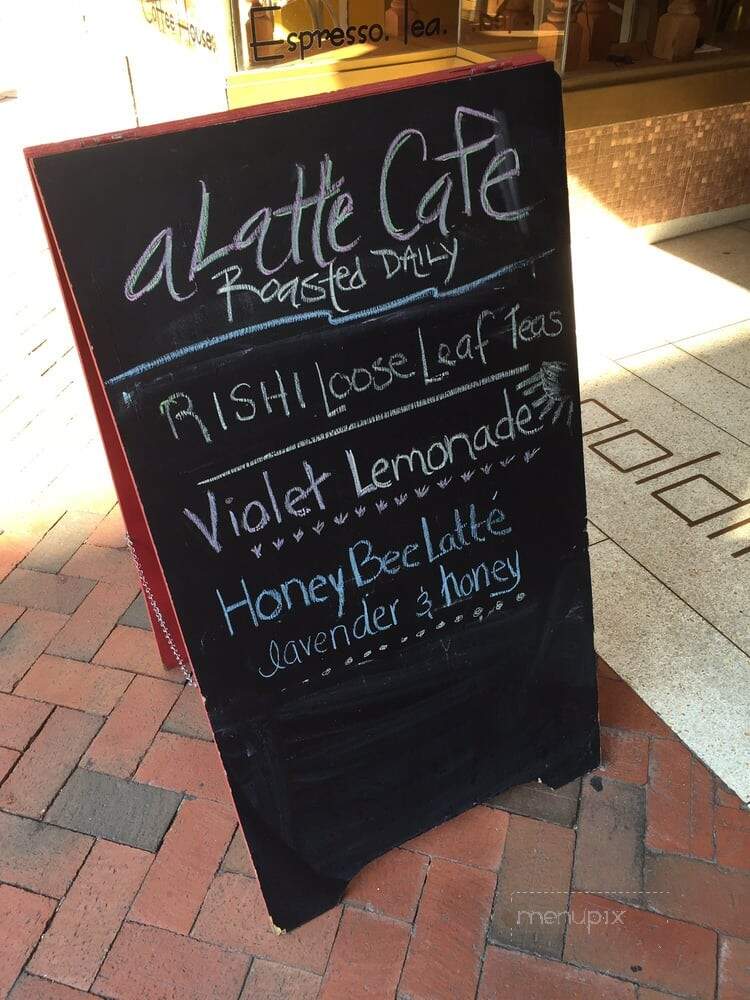 Coffee Houses
Espresso. Tea.
aLatte Cafe
Roasted DAILY
RISHI Loose Leaf Teas
Violet Lemonade
Honey Bee Latté
lavender & honey
menupix